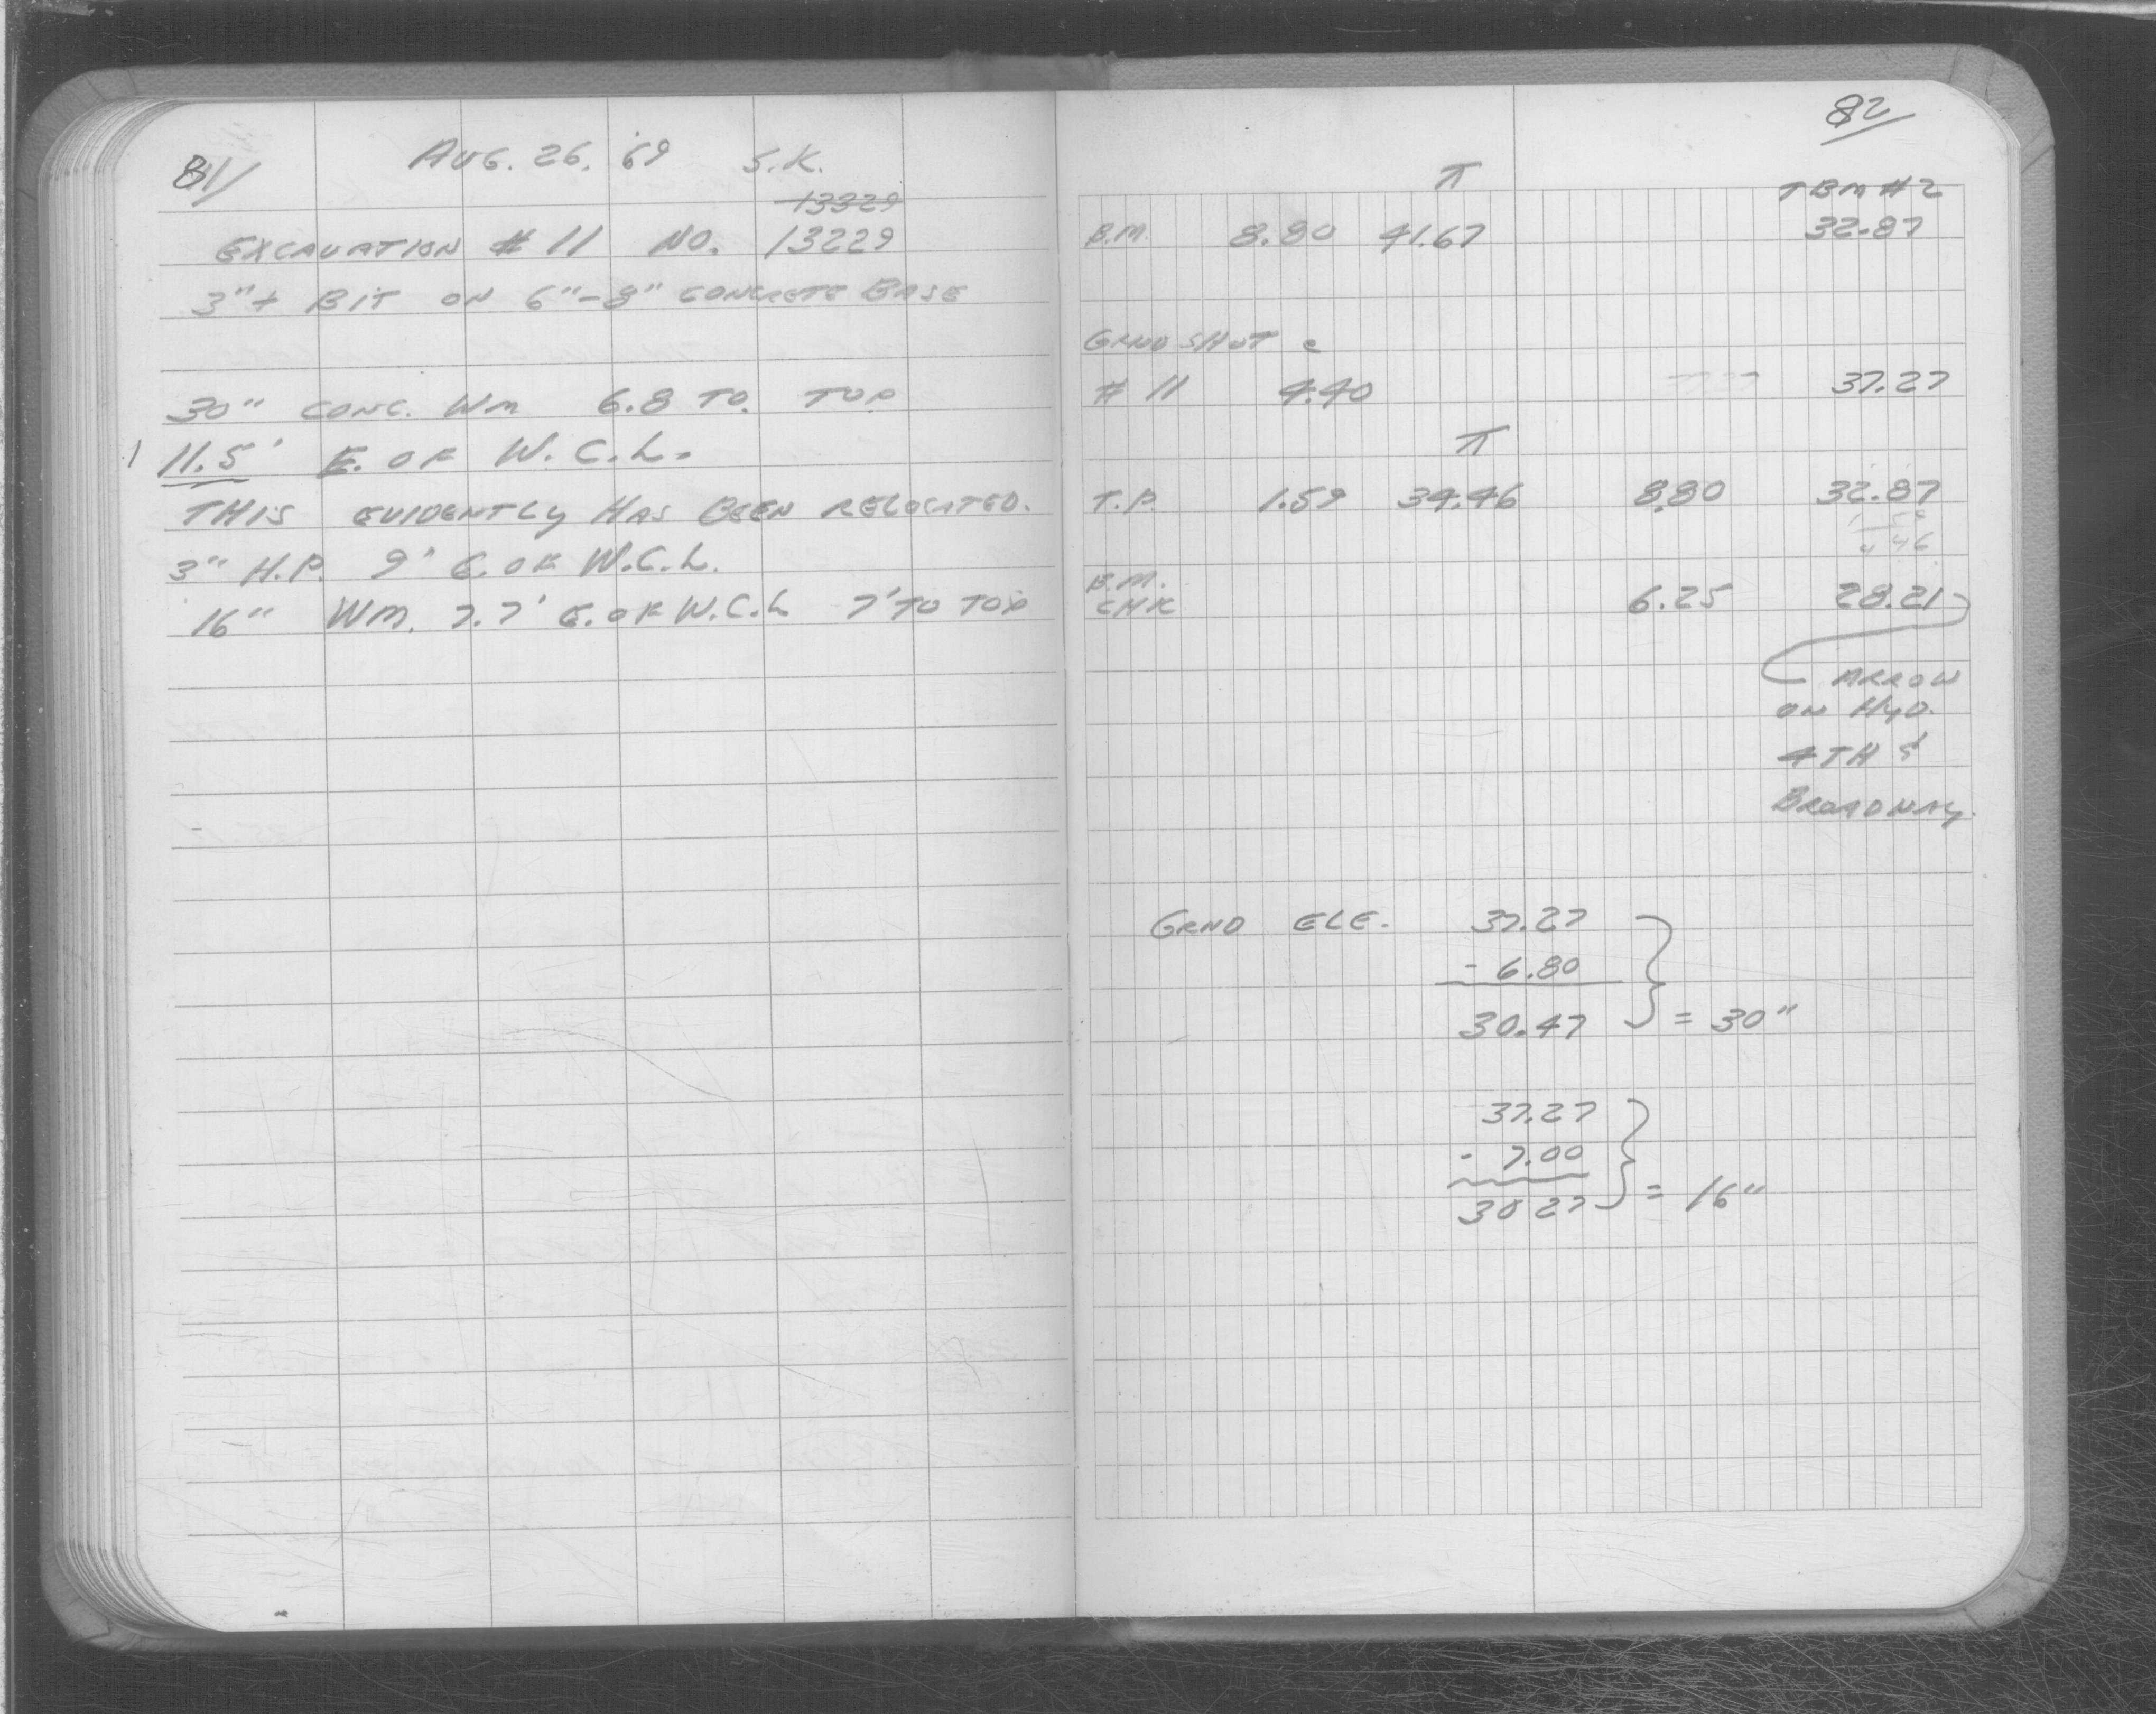 81/ AUG. 26, '69 S.K.
13329
EXCAVATION # 11 NO. 13229
3"+ BIT ON 6"-8" CONCRETE BASE
30" CONC. WM 6.8 TO TOP
11.5' E. OF W.C.L.
THIS EVIDENTLY HAS BEEN RELOCATED.
3" H.P. 9' E. OF W.C.L.
16" WM. 7.7' E. OF W.C.L 7' TO TOP
82
π TBM #2
B.M. 8.80 41.67 32.87
GRND SHOT @
# 11 4.40 37.27
π
T.P. 1.59 34.46 8.80 32.87
B.M.
CHK 6.25 28.21
ARROW
ON HYD.
4TH &
BROADWAY.
GRND ELE. 37.27
- 6.80
30.47 = 30"
37.27
- 7.00
30 27 = 16"